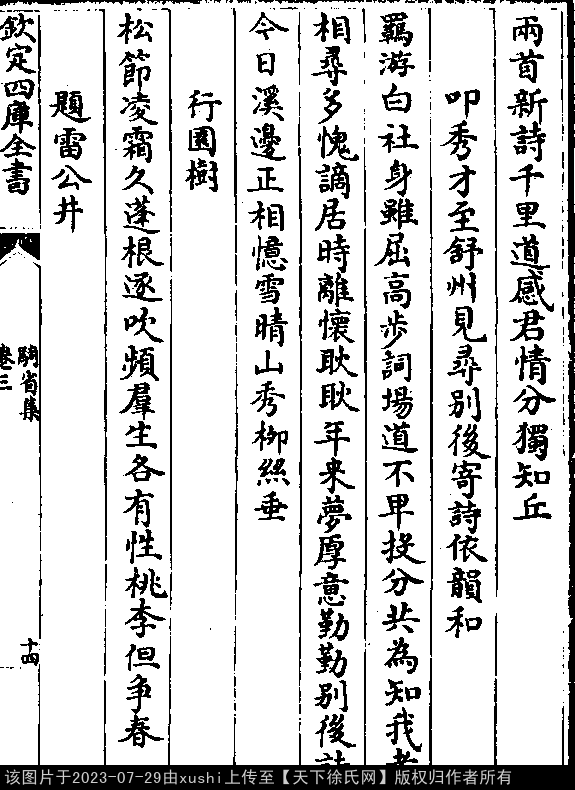 兩首新詩千里道感君情分獨知丘
叩秀才至舒州見尋别後寄詩依韻和
羈游白社身雖屈高歩詞場道不卑投分共為知我者
相尋多愧謫居時離懷耿耿年来夢厚意勤勤别後詩
今日溪邊正相憶雪晴山秀栁絲垂
行園樹
松節凌霜久蓬根逐吹頻羣生各有性桃李但争春
題雷公井
欽定四庫全書
騎省集
卷三
十四
该图片于2023-07-29由xushi上传至【天下徐氏网】版权归作者所有